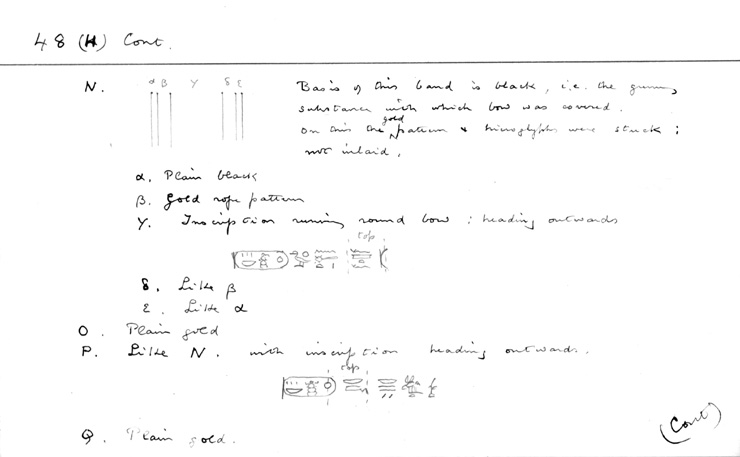 48 (H) Cont.
N. α β γ δ ε
Basis of this band is black, i.e. the gummy
substance with which bow was covered.
On this the gold pattern & hieroglyphs were stuck;
not inlaid.
α. Plain black
β. Gold rope pattern
γ. Inscription running round bow: heading outwards
top
δ. Like β
ε. Like α
O. Plain gold
P. Like N. with inscription heading outwards.
top
Q. Plain gold.
(Cont)